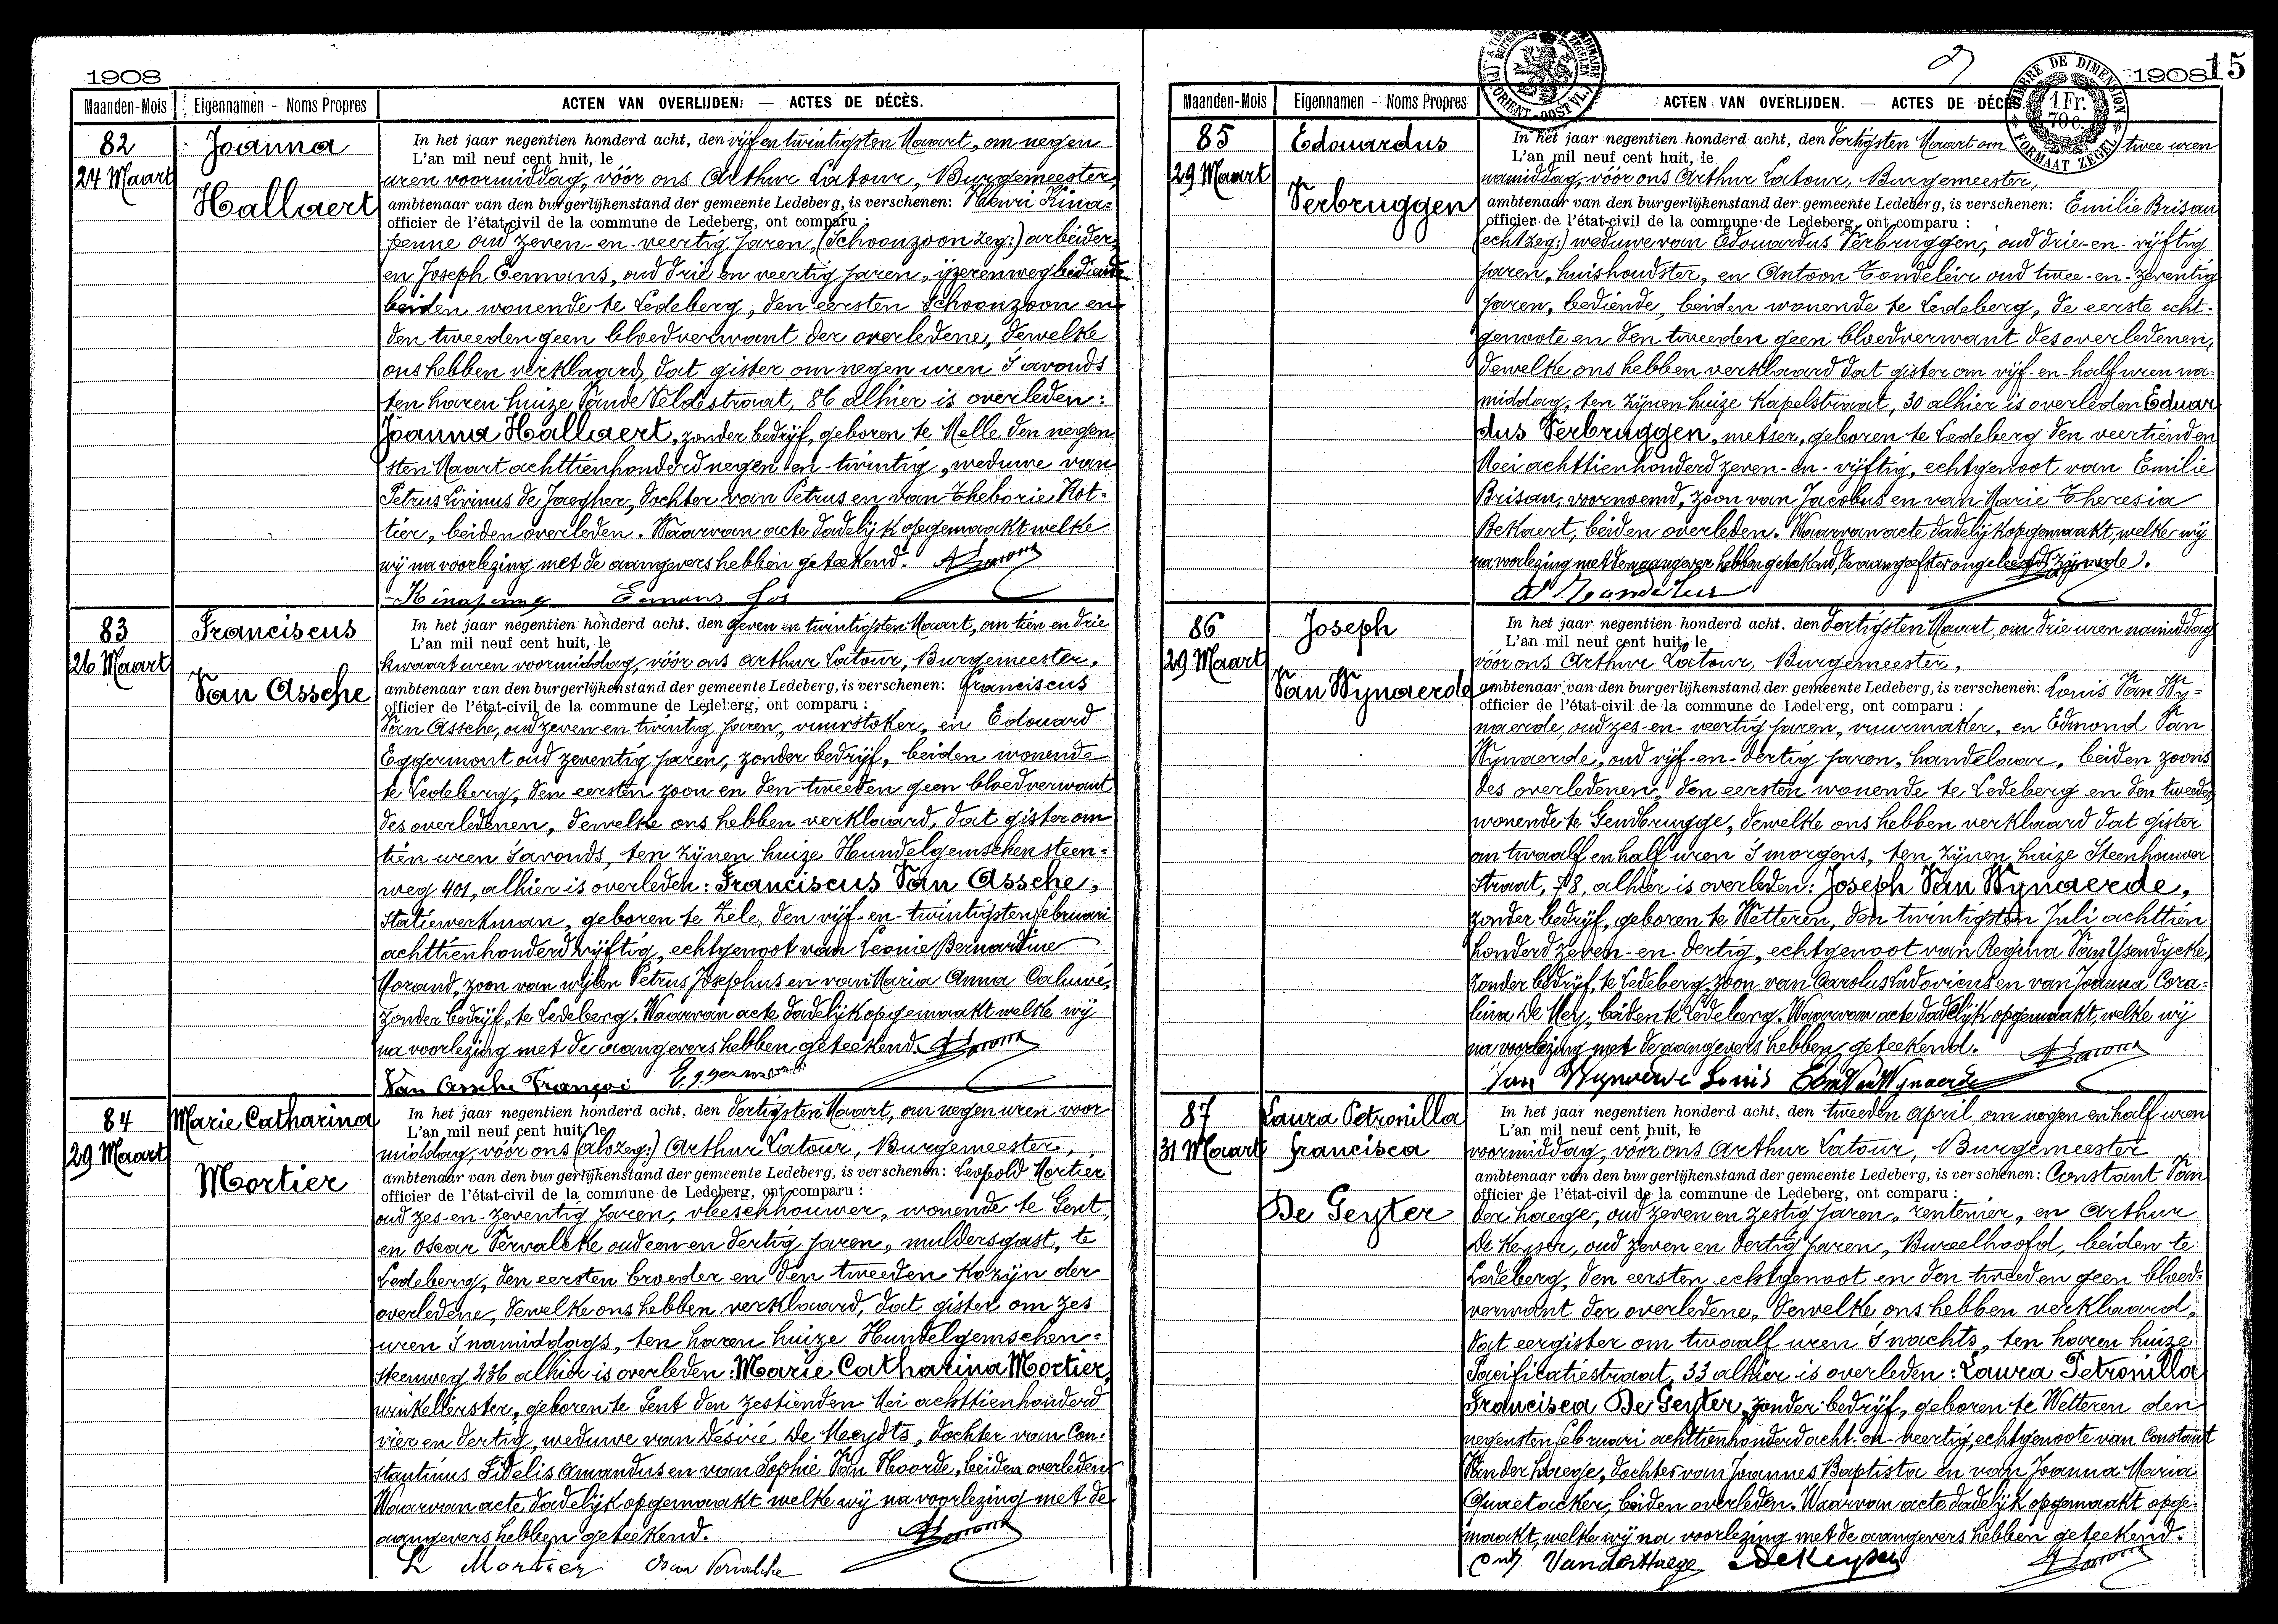 1908
Maanden-Mois
Eigennamen - Noms Propres
ACTEN VAN OVERLIJDEN. — ACTES DE DÉCÈS.
82
24 Maart
Joanna
Hallaert
In het jaar negentien honderd acht, den vijf en twintigsten Maart, om negen
L'an mil neuf cent huit, le
uren voormiddag, vóór ons Arthur Latour, Burgemeester,
ambtenaar van den burgerlijkenstand der gemeente Ledeberg, is verschenen: Henri Kina-
officier de l'état-civil de la commune de Ledeberg, ont comparu :
penne oud zeven-en-veertig jaren, (Schoonzoon zeg:) arbeider,
en Joseph Eemans, oud drie en veertig jaren, ijzerenwegbediende
beiden wonende te Ledeberg, den eersten schoonzoon en
den tweeden geen bloedverwant der overledene, dewelke
ons hebben verklaard, dat gister om negen uren 's avonds
ten haren huize Vande Veldestraat, 86 alhier is overleden:
Joanna Hallaert, zonder bedrijf, geboren te Melle den negen
sten Maart achttienhonderd negen en-twintig, weduwe van
Petrus Livinus de Jaegher, dochter van Petrus en van Theborie Kot-
tier, beiden overleden. Waarvan acte dadelijk opgemaakt welke
wij na voorlezing met de aangevers hebben geteekend.
Kinapenne Eemans Jos
83
26 Maart
Franciscus
Van Assche
In het jaar negentien honderd acht, den zeven en twintigsten Maart, om tien en drie
L'an mil neuf cent huit, le
kwaart uren voormiddag, vóór ons Arthur Latour, Burgemeester,
ambtenaar van den burgerlijkenstand der gemeente Ledeberg, is verschenen: Franciscus
officier de l'état-civil de la commune de Ledeberg, ont comparu :
Van Assche, oud zeven en twintig jaren, vuurstoker, en Edouard
Eggermont oud zeventig jaren, zonder bedrijf, beiden wonende
te Ledeberg, den eersten zoon en den tweeden geen bloedverwant
des overledenen, dewelke ons hebben verklaard, dat gister om
tien uren 's avonds, ten zijnen huize Hundelgemschensteen-
weg 401, alhier is overleden: Franciscus Van Assche,
Statiewerkman, geboren te Zele, den vijf-en-twintigsten Februari
achttienhonderd vijftig, echtgenoot van Leonie Bernardine
Morand, zoon van wijlen Petrus Josephus en van Maria Anna Caluwé,
zonder bedrijf, te Ledeberg. Waarvan acte dadelijk opgemaakt welke wij
na voorlezing met de aangevers hebben geteekend.
Van Assche François Eggermont
84
29 Maart
Marie Catharina
Mortier
In het jaar negentien honderd acht, den dertigsten Maart, om negen uren voor
L'an mil neuf cent huit, le
middag, vóór ons (alszeg:) Arthur Latour, Burgemeester,
ambtenaar van den burgerlijkenstand der gemeente Ledeberg, is verschenen: Leopold Mortier
officier de l'état-civil de la commune de Ledeberg, ont comparu :
oud zes-en-zeventig jaren, vleeschhouwer, wonende te Gent,
en Oscar Vervalcke oud een en dertig jaren, muldersgast, te
Ledeberg, den eersten broeder en den tweeden kozijn der
overledene, dewelke ons hebben verklaard, dat gister om zes
uren 's namiddags, ten haren huize Hundelgemschen-
steenweg 236 alhier is overleden: Marie Catharina Mortier,
winkelierster, geboren te Gent den zestienden Mei achttienhonderd
vier en dertig, weduwe van Désiré De Meydts, dochter van Con-
stantinus Fidelis Amandus en van Sophie Van Hoorde, beiden overleden.
Waarvan acte dadelijk opgemaakt welke wij na voorlezing met de
aangevers hebben geteekend.
L Mortier Oscar Vervalcke
1908
15
TIMBRE DE DIMENSION
1 Fr.
70 c.
FORMAAT ZEGEL
Maanden-Mois
Eigennamen - Noms Propres
ACTEN VAN OVERLIJDEN. — ACTES DE DÉC
85
29 Maart
Edouardus
Verbruggen
In het jaar negentien honderd acht, den dertigsten Maart om twee uren
L'an mil neuf cent huit, le
namiddag, vóór ons Arthur Latour, Burgemeester,
ambtenaar van den burgerlijkenstand der gemeente Ledeberg, is verschenen: Emilie Brisau
officier de l'état-civil de la commune de Ledeberg, ont comparu :
(echt zeg:) weduwe van Edouardus Verbruggen, oud drie-en-vijftig
jaren, huishoudster, en Antoon Tondeleir oud twee-en-zeventig
jaren, bediende, beiden wonende te Ledeberg, de eerste echt-
genoote en den tweeden geen bloedverwant des overledenen,
dewelke ons hebben verklaard dat gister om vijf-en-half uren na-
middag, ten zijnen huize Kapelstraat, 30 alhier is overleden Eduar
dus Verbruggen, metser, geboren te Ledeberg den veertienden
Mei achttienhonderd zeven-en-vijftig, echtgenoot van Emilie
Brisau, voornoemd, zoon van Jacobus en van Marie Theresia
Bekaert, beiden overleden. Waarvan acte dadelijk opgemaakt, welke wij
na voorlezing met den aangever hebben geteekend, de aangeefster ongeleerd zijnde.
86
29 Maart
Joseph
Van Wynaerde
In het jaar negentien honderd acht, den dertigsten Maart, om drie uren namiddag
L'an mil neuf cent huit, le
vóór ons Arthur Latour, Burgemeester,
ambtenaar van den burgerlijkenstand der gemeente Ledeberg, is verschenen: Louis Van Wy-
officier de l'état-civil de la commune de Ledeberg, ont comparu :
naerde, oud zes-en-veertig jaren, vuurmaker, en Edmond Van
Wynaerde, oud vijf-en-dertig jaren, handelaar, beiden zoons
des overledenen, den eersten wonende te Ledeberg en den tweeden
wonende te Gendbrugge, dewelke ons hebben verklaard dat gister
om twaalf en half uren 's morgens, ten zijnen huize Steenhouwer
straat, 78, alhier is overleden: Joseph Van Wynaerde,
zonder bedrijf, geboren te Wetteren, den twintigsten Juli achttien
honderd zeven-en-dertig, echtgenoot van Regina Van Ysendycke,
zonder bedrijf, te Ledeberg, zoon van Carolus Ludovicus en van Joanna Cora-
lina De Mey, beiden te Ledeberg. Waarvan acte dadelijk opgemaakt, welke wij
na voorlezing met de aangevers hebben geteekend.
Van Wynaerde Louis Edm Van Wynaerde
87
31 Maart
Laura Petronilla
Francisca
De Geyter
In het jaar negentien honderd acht, den tweeden April om negen en half uren
L'an mil neuf cent huit, le
voormiddag, vóór ons Arthur Latour, Burgemeester
ambtenaar van den burgerlijkenstand der gemeente Ledeberg, is verschenen: Constant Van
officier de l'état-civil de la commune de Ledeberg, ont comparu :
der haege, oud zeven en zestig jaren, rentenier, en Arthur
De Keyser, oud zeven en dertig jaren, Bureelhoofd, beiden te
Ledeberg, den eersten echtgenoot en den tweeden geen bloed-
verwant der overledene, dewelke ons hebben verklaard,
dat eergister om twaalf uren 's nachts, ten haren huize
Pacificatiestraat, 33 alhier is overleden: Laura Petronilla
Francisca De Geyter, zonder bedrijf, geboren te Wetteren den
negensten Februari achttienhonderd acht-en-veertig, echtgenoote van Constant
Van der haege, dochter van Joannes Baptista en van Joanna Maria
Quaetacker, beiden overleden. Waarvan acte dadelijk opgemaakt opge-
maakt, welke wij na voorlezing met de aangevers hebben geteekend.
Const. VanderHaege DeKeyser